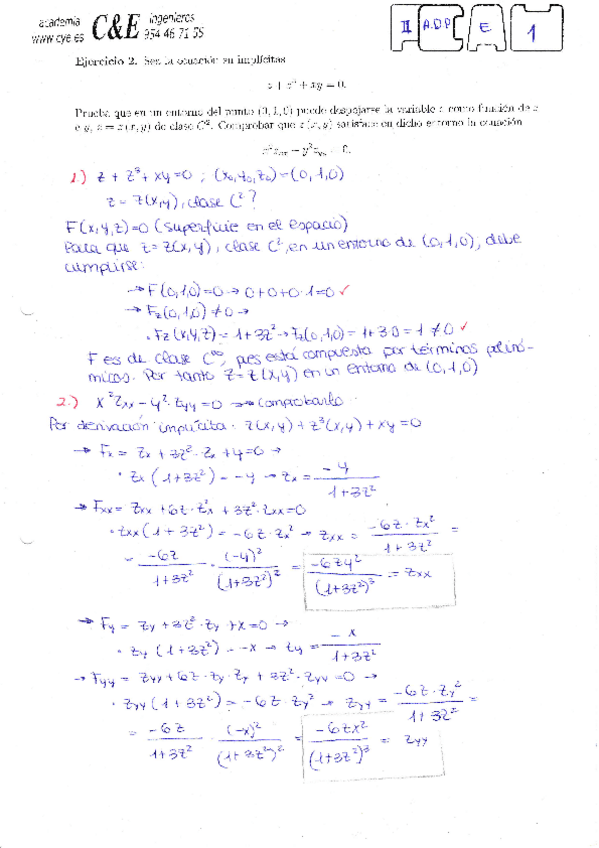 academia C&E ingenieros
www.cye.es 954 46 71 55
II A.D.P E 1
Ejercicio 2. Sea la ecuación en implícitas
z + z³ + xy = 0.
Prueba que en un entorno del punto (0, 1, 0) puede despejarse la variable z como función de x
e y, z = z(x, y) de clase C². Comprobar que z(x, y) satisface en dicho entorno la ecuación
x²zxx − y²zyy = 0.
1.) z + z³ + xy = 0 ; (x₀,y₀,z₀) = (0,1,0)
z = z(x,y), clase C²?
F(x,y,z)=0 (Superficie en el espacio)
Para que z = z(x,y), clase C², en un entorno de (0,1,0), debe
cumplirse:
→ F(0,1,0)=0 → 0+0+0·1=0 ✓
→ Fz(0,1,0) ≠ 0 →
· Fz(x,y,z) = 1+3z² → Fz(0,1,0) = 1+3·0 = 1 ≠ 0 ✓
F es de clase C^∞, pues está compuesta por términos polinó-
micos. Por tanto z = z(x,y) en un entorno de (0,1,0)
2.) x² zxx − y² · zyy = 0 → comprobarlo
Por derivación implícita · z(x,y) + z³(x,y) + xy = 0
→ Fx = zx + 3z² · zx + y = 0 →
· zx (1+3z²) = −y → zx = −y / (1+3z²)
→ Fxx = zxx + 6z · zx² + 3z² · zxx = 0
· zxx (1+3z²) = −6z · zx² → zxx = −6z · zx² / (1+3z²) =
= −6z / (1+3z²) · (−y)² / (1+3z²)² = −6zy² / (1+3z²)³ = zxx
→ Fy = zy + 3z² · zy + x = 0 →
· zy (1+3z²) = −x → zy = −x / (1+3z²)
→ Fyy = zyy + 6z · zy · zy + 3z² · zyy = 0 →
· zyy (1+3z²) = −6z · zy² → zyy = −6z · zy² / (1+3z²) =
= −6z / (1+3z²) · (−x)² / (1+3z²)² = −6zx² / (1+3z²)³ = zyy